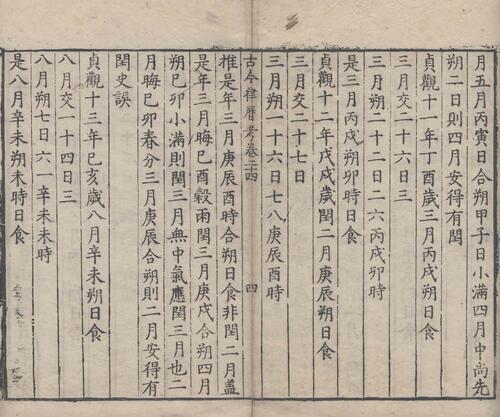 月五月丙寅日合朔甲子日小滿四月中尚先
朔二日則四月安得有閏
貞觀十一年丁酉歲三月丙戌朔日食
三月交二十六日三
三月朔二十二日二六丙戌卯時
是三月丙戌朔卯時日食
貞觀十二年戊戌歲閏二月庚辰朔日食
三月交二十七日
三月朔一十六日七八庚辰酉時
古今律曆考卷二十四
四
惟是年三月庚辰酉時合朔日食非閏二月蓋
是年三月晦巳酉穀雨閏三月庚戌合朔四月
朔巳卯小滿則閏三月無中氣應閏三月也二
月晦巳卯春分三月庚辰合朔則二月安得有
閏史誤
貞觀十三年巳亥歲八月辛未朔日食
八月交一十四日三
八月朔七日六一辛未未時
是八月辛未朔未時日食